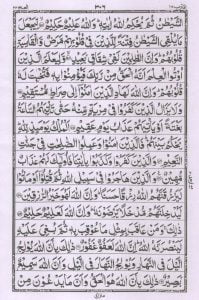 ٣٠٦
الشَّيْطٰنُ ثُمَّ يُحْكِمُ اللّٰهُ اٰيٰتِهٖ ؕ وَاللّٰهُ عَلِيْمٌ حَكِيْمٌ ۙ لِّيَجْعَلَ
مَا يُلْقِي الشَّيْطٰنُ فِتْنَةً لِّلَّذِيْنَ فِيْ قُلُوْبِهِمْ مَّرَضٌ وَّالْقَاسِيَةِ
قُلُوْبُهُمْ ؕ وَاِنَّ الظّٰلِمِيْنَ لَفِيْ شِقَاقٍۭ بَعِيْدٍ ۙ وَّلِيَعْلَمَ الَّذِيْنَ
اُوْتُوا الْعِلْمَ اَنَّهُ الْحَقُّ مِنْ رَّبِّكَ فَيُؤْمِنُوْا بِهٖ فَتُخْبِتَ لَهٗ
قُلُوْبُهُمْ ؕ وَاِنَّ اللّٰهَ لَهَادِ الَّذِيْنَ اٰمَنُوْٓا اِلٰى صِرَاطٍ مُّسْتَقِيْمٍ
وَلَا يَزَالُ الَّذِيْنَ كَفَرُوْا فِيْ مِرْيَةٍ مِّنْهُ حَتّٰى تَاْتِيَهُمُ السَّاعَةُ
بَغْتَةً اَوْ يَاْتِيَهُمْ عَذَابُ يَوْمٍ عَقِيْمٍ اَلْمُلْكُ يَوْمَئِذٍ لِّلّٰهِ ؕ
يَحْكُمُ بَيْنَهُمْ ؕ فَالَّذِيْنَ اٰمَنُوْا وَعَمِلُوا الصّٰلِحٰتِ فِيْ جَنّٰتِ
النَّعِيْمِ وَالَّذِيْنَ كَفَرُوْا وَكَذَّبُوْا بِاٰيٰتِنَا فَاُولٰٓئِكَ لَهُمْ عَذَابٌ
مُّهِيْنٌ وَالَّذِيْنَ هَاجَرُوْا فِيْ سَبِيْلِ اللّٰهِ ثُمَّ قُتِلُوْٓا اَوْ مَاتُوْا
لَيَرْزُقَنَّهُمُ اللّٰهُ رِزْقًا حَسَنًا ؕ وَاِنَّ اللّٰهَ لَهُوَ خَيْرُ الرّٰزِقِيْنَ
لَيُدْخِلَنَّهُمْ مُّدْخَلًا يَّرْضَوْنَهٗ ؕ وَاِنَّ اللّٰهَ لَعَلِيْمٌ حَلِيْمٌ
ذٰلِكَ ۚ وَمَنْ عَاقَبَ بِمِثْلِ مَا عُوْقِبَ بِهٖ ثُمَّ بُغِيَ عَلَيْهِ
لَيَنْصُرَنَّهُ اللّٰهُ ؕ اِنَّ اللّٰهَ لَعَفُوٌّ غَفُوْرٌ ذٰلِكَ بِاَنَّ اللّٰهَ يُوْلِجُ
الَّيْلَ فِي النَّهَارِ وَيُوْلِجُ النَّهَارَ فِي الَّيْلِ وَاَنَّ اللّٰهَ سَمِيْعٌۢ
بَصِيْرٌ ذٰلِكَ بِاَنَّ اللّٰهَ هُوَ الْحَقُّ وَاَنَّ مَا يَدْعُوْنَ مِنْ